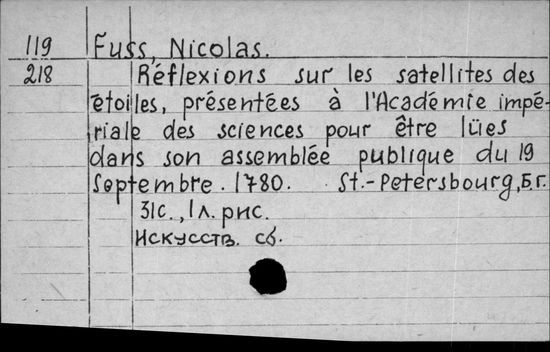 119 Fuss, Nicolas.
218 Réflexions sur les satellites des
étoiles, présentées à l'Académie impé-
riale des sciences pour être lües
dans son assemblée publique du 19
Septembre. 1780. St.-Petersbourg, Б.г.
31с., 1 л. рис.
Искусств. сб.